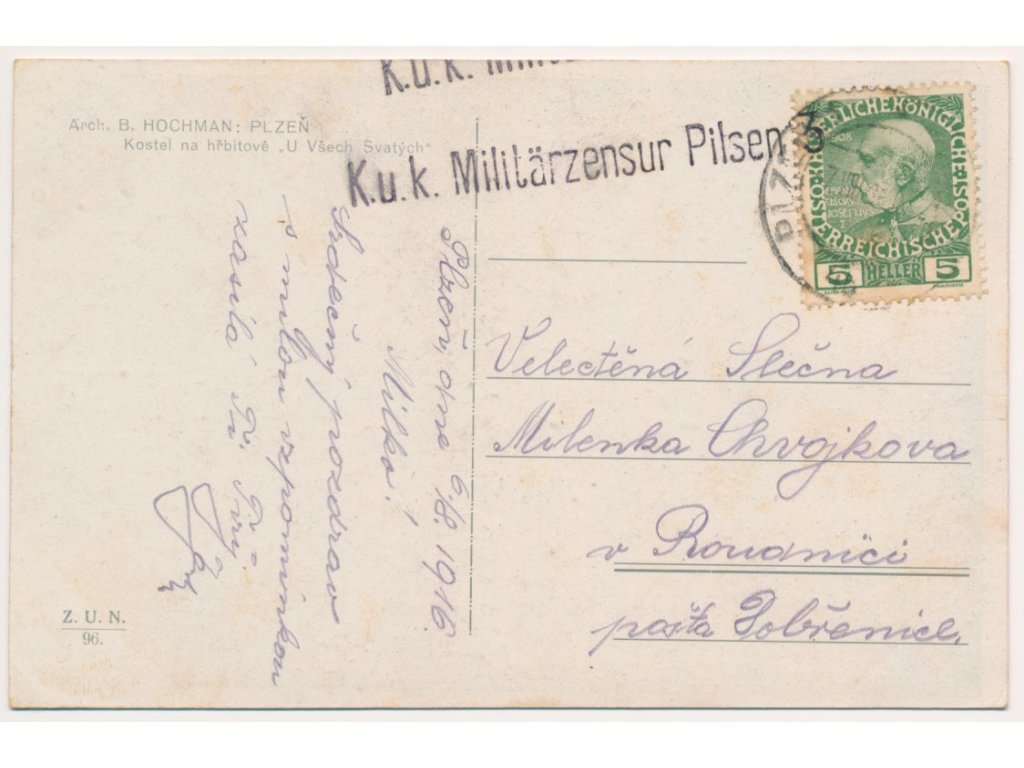 K.u.k. Mili
Arch. B. HOCHMAN: PLZEŇ
Kostel na hřbitově „U Všech Svatých"
K.u.k. Militärzensur Pilsen 3
PLZ
1908
KAISERLICHE KÖNIGLICHE ÖSTERREICHISCHE POST
FRANCISCVS JOSEPHVS I
5 HELLER 5
Plzeň, dne 6./8. 1916.
Milko!
Srdečný pozdrav
s milou vzpomínkou
zasílá Ti Tvůj
Velectěná Slečna
Milenka Chvojkova
v Roudnici
pošta Dobřenice.
Z. U. N.
96.